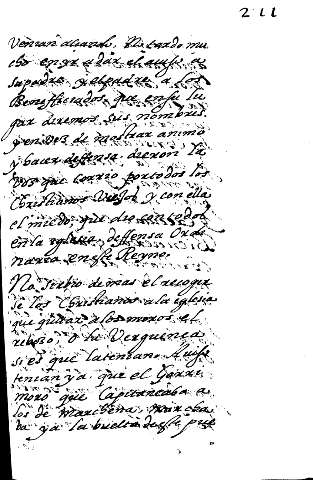 211
venian alçando. No tardo mu
cho en yr a dar el auiso a
su padre, y el padre a los
Beneficiados que en su lu
gar diremos sus nombres
y en vez de mostrar animo
y hacer deffensa dieron la
voz que corrio por todos los
Christianos viejos y con ella
el miedo que dio con todos
en la iglesia deffensa Ordi
naria en este Reyno.
No sirbio de mas el recogir
se los Christianos a la iglesia
que quitar a los moros el
reboço, o la Verguença
si es que la tenian. Auiso
tenian ya que el Gorri
moro que Capitaneaba a
los de Marchena marcha
ba ya la buelta deste pue